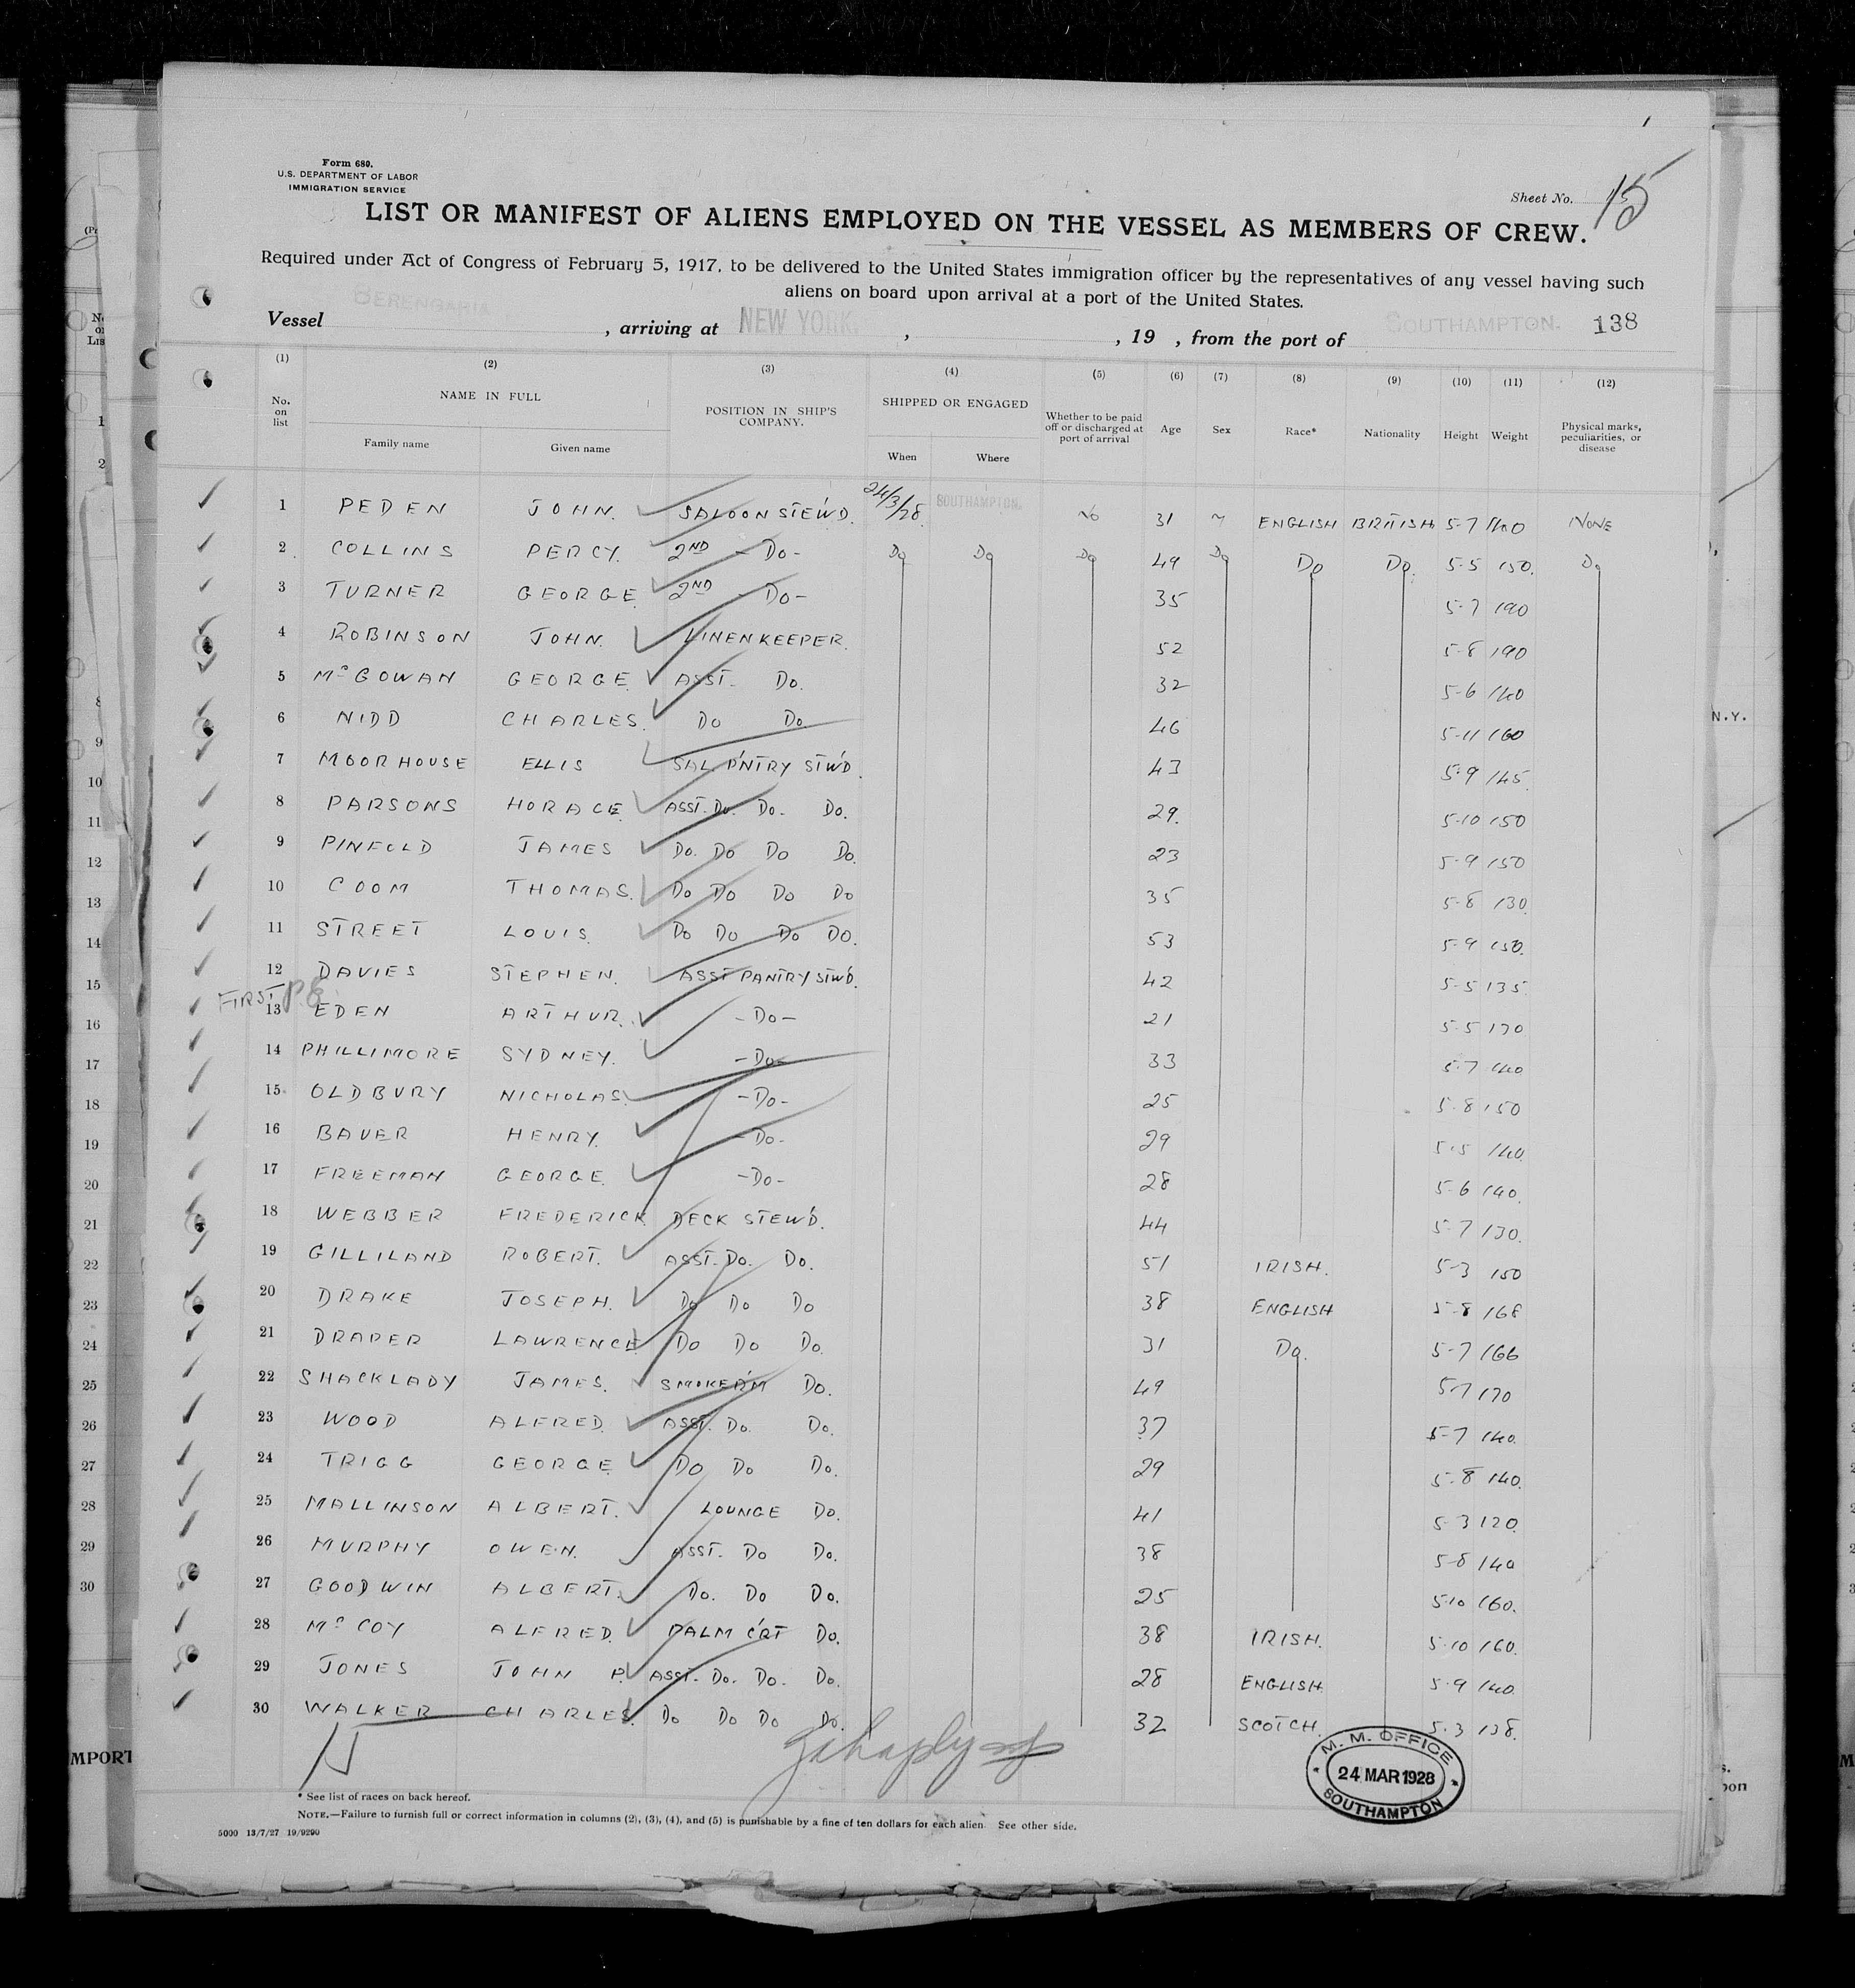 Form 680.
U.S. DEPARTMENT OF LABOR
IMMIGRATION SERVICE
Sheet No. 15
LIST OR MANIFEST OF ALIENS EMPLOYED ON THE VESSEL AS MEMBERS OF CREW.
Required under Act of Congress of February 5, 1917, to be delivered to the United States immigration officer by the representatives of any vessel having such
aliens on board upon arrival at a port of the United States.
Vessel BERENGARIA , arriving at NEW YORK. , , 19 , from the port of SOUTHAMPTON. 138
(1) (2) (3) (4) (5) (6) (7) (8) (9) (10) (11) (12)
No. on list NAME IN FULL Family name Given name POSITION IN SHIP'S COMPANY. SHIPPED OR ENGAGED When Where Whether to be paid off or discharged at port of arrival Age Sex Race* Nationality Height Weight Physical marks, peculiarities, or disease
1 PEDEN JOHN. SALOON STEW'D. 24/3/28. SOUTHAMPTON. No 31 ENGLISH BRITISH 5-7 NONE
2 COLLINS PERCY. 2ND -Do- Do Do Do 49 Do Do Do. 5-5 150. Do
3 TURNER GEORGE. 2ND -Do- 35 5-7 190
4 ROBINSON JOHN. LINENKEEPER. 52 5-8 190
5 McGOWAN GEORGE ASST. Do. 32 5-6 140
6 NIDD CHARLES. Do Do 46 5-11 160
7 MOORHOUSE ELLIS SAL. P'NTRY STW'D. 43 5-9 145.
8 PARSONS HORACE. ASST. Do. Do. Do. 29. 5-10 150
9 PINFOLD JAMES Do. Do Do Do. 23 5-9 150
10 COOM THOMAS. Do Do Do Do 35 5-8 130.
11 STREET LOUIS. Do Do Do Do. 53 5-9 150.
12 DAVIES STEPHEN. ASST PANTRY STW'D. 42 5-5 135.
FIRST P.E.
13 EDEN ARTHUR. -Do- 21 5-5 170
14 PHILLIMORE SYDNEY. -Do- 33 5-7 140
15 OLDBURY NICHOLAS. -Do- 25 5-8 150
16 BAUER HENRY. -Do- 29 5-5 140.
17 FREEMAN GEORGE. -Do- 28 5-6 140.
18 WEBBER FREDERICK DECK STEW'D. 44 5-7 130.
19 GILLILAND ROBERT. ASST. Do. Do. 51 IRISH. 5-3 150
20 DRAKE JOSEPH. Do Do Do 38 ENGLISH 5-8 168
21 DRAPER LAWRENCE Do Do Do. 31 Do. 5-7 166
22 SHACKLADY JAMES. SMOKER'M Do. 49 5-7 170
23 WOOD ALFRED. ASST. Do. Do. 37 5-7 140.
24 TRIGG GEORGE Do Do Do. 29 5-8 140.
25 MALLINSON ALBERT. LOUNGE Do. 41 5-3 120.
26 MURPHY OWEN. ASST. Do Do. 38 5-8 140
27 GOODWIN ALBERT. Do. Do Do. 25 5-10 160.
28 McCOY ALFRED. PALM C'RT Do. 38 IRISH. 5-10 160.
29 JONES JOHN P. ASST. Do. Do. Do. 28 ENGLISH. 5-9 140.
30 WALKER CHARLES. Do Do Do Do. 32 SCOTCH. 5-3 138.
M. M. OFFICE
24 MAR 1928
SOUTHAMPTON
* See list of races on back hereof.
NOTE.—Failure to furnish full or correct information in columns (2), (3), (4), and (5) is punishable by a fine of ten dollars for each alien. See other side.
5000 13/7/27 19/9290